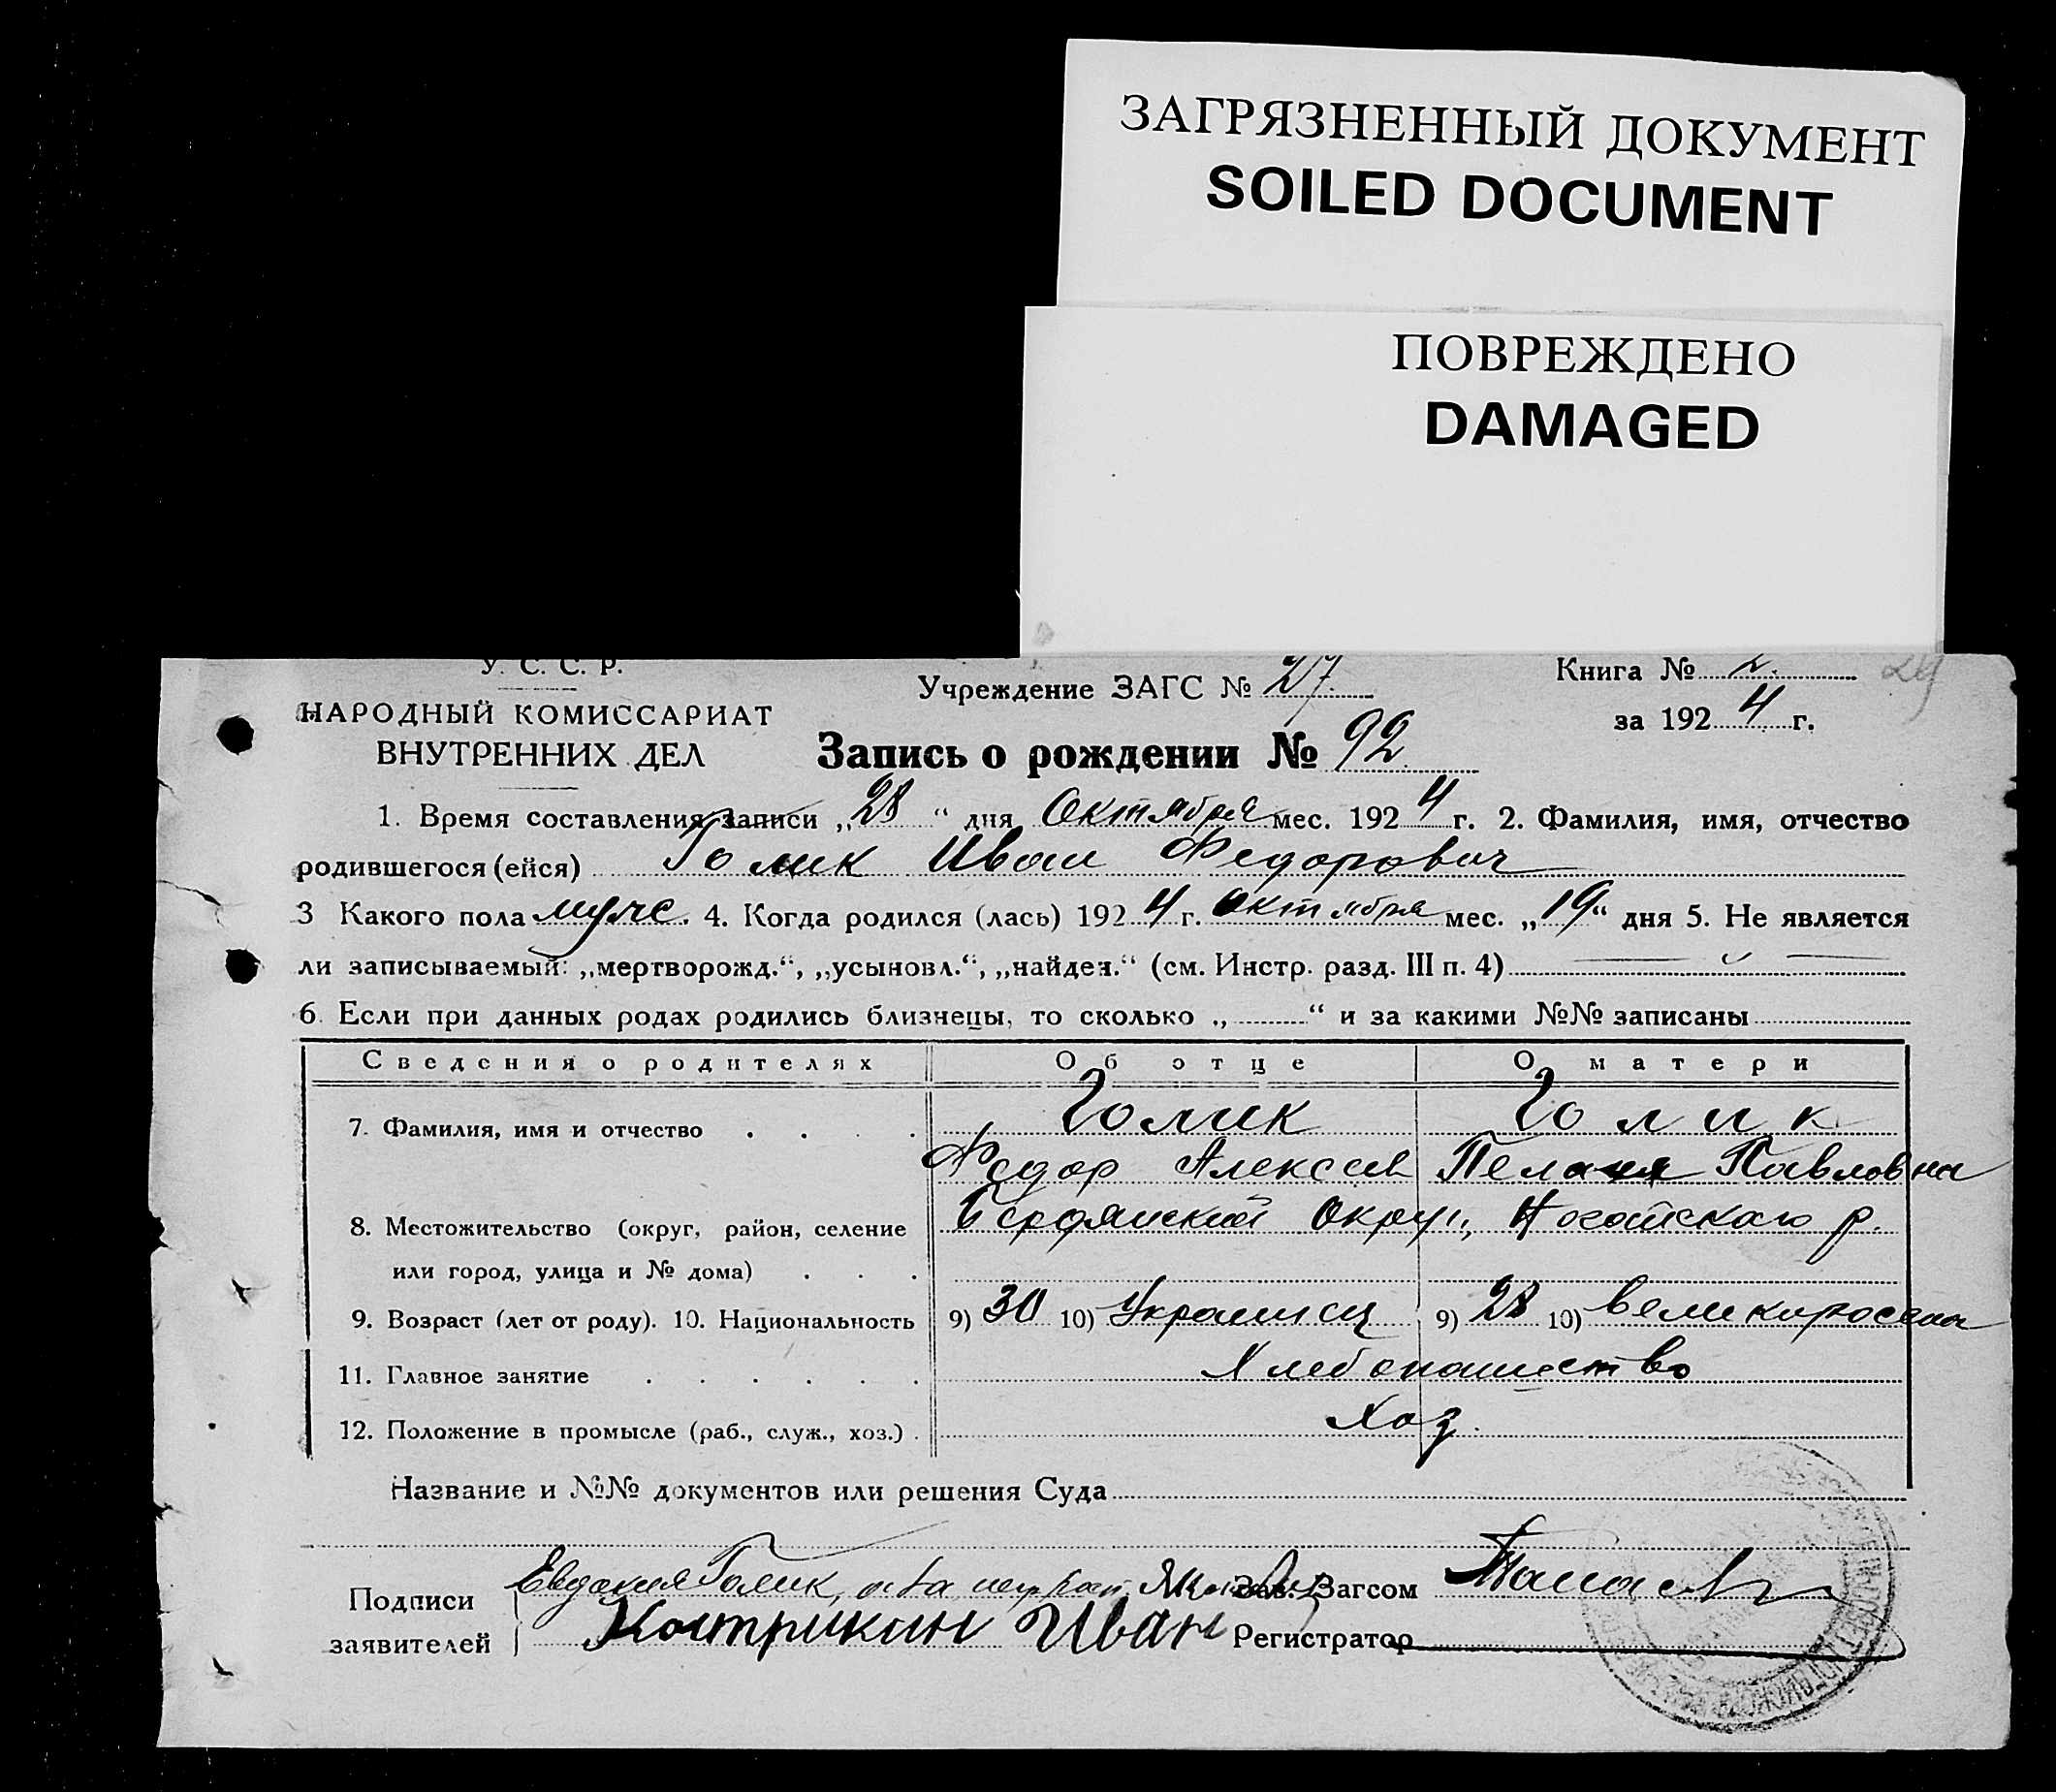 ЗАГРЯЗНЕННЫЙ ДОКУМЕНТ
SOILED DOCUMENT
ПОВРЕЖДЕНО
DAMAGED
У. С. С. Р.
НАРОДНЫЙ КОМИССАРИАТ
ВНУТРЕННИХ ДЕЛ
Учреждение ЗАГС № 27
Книга № 2.
29
за 1924 г.
Запись о рождении № 92
1. Время составления записи „28“ дня Октября мес. 1924 г. 2. Фамилия, имя, отчество
родившегося (ейся) Голик Иван Федорович
3 Какого пола муж. 4. Когда родился (лась) 1924 г. октября мес. „19“ дня 5. Не является
ли записываемый: „мертворожд.“, „усыновл.“, „найден.“ (см. Инстр. разд. III п. 4)
6. Если при данных родах родились близнецы, то сколько „ “ и за какими №№ записаны
Сведения о родителях Об отце О матери
7. Фамилия, имя и отчество Голик Голик
Федор Алексеев Пелагия Павловна
8. Местожительство (округ, район, селение Бердянский Округ, Ногайского р.
или город, улица и № дома)
9. Возраст (лет от роду). 10. Национальность 9) 30 10) Украинец 9) 28 10) великоросска
11. Главное занятие Хлебопашество
12. Положение в промысле (раб., служ., хоз.) Хоз.
Название и №№ документов или решения Суда
Подписи заявителей
Евдокия Голик, а за неграм.
Зав. Загсом
Кострикин Иван
Регистратор